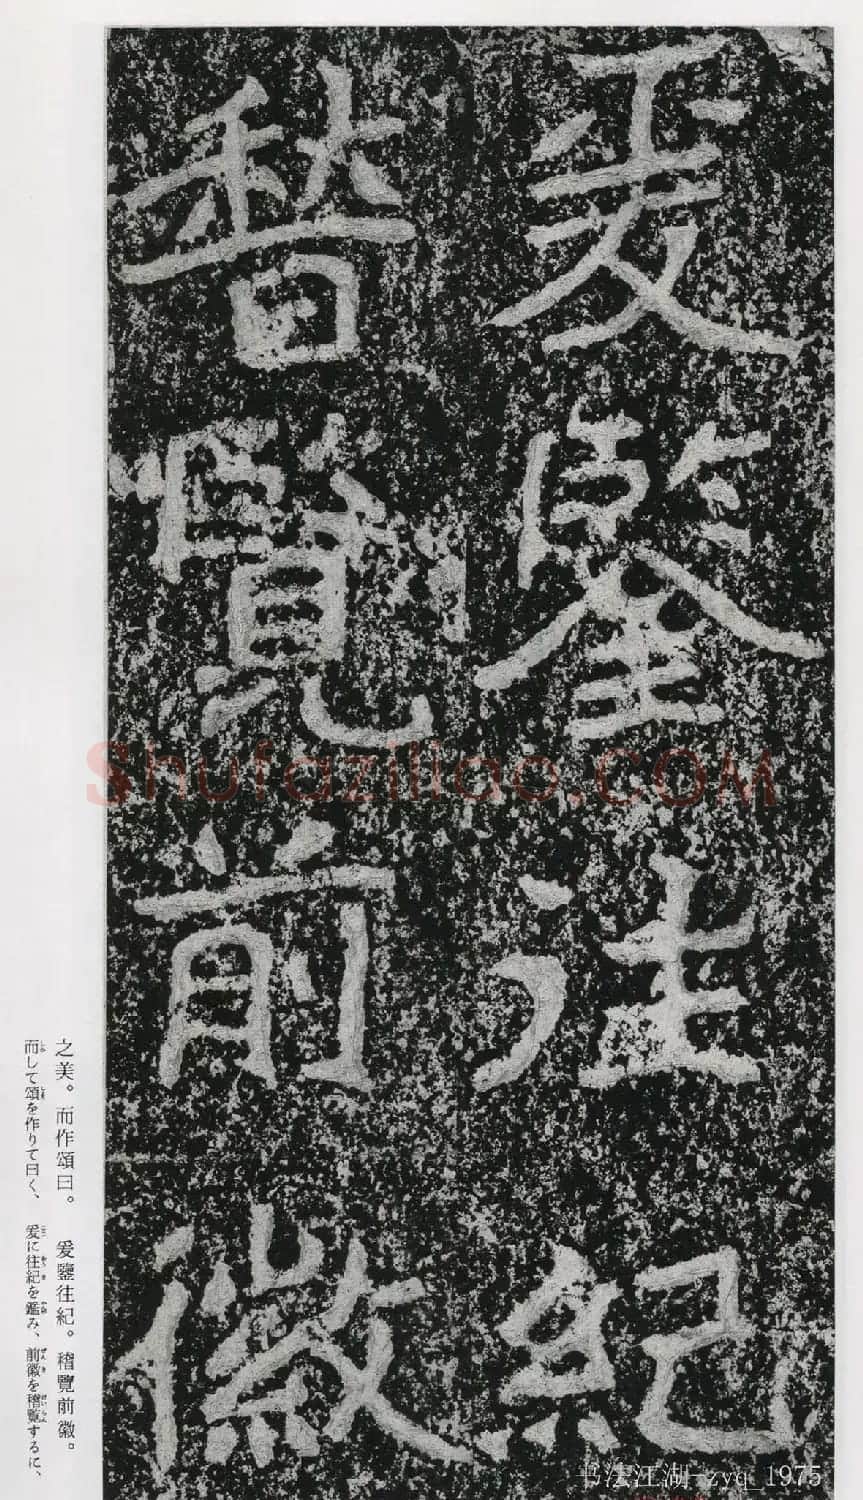 爰鑒往紀
稽覽前徽
之美。而作頌曰。　爰鑒往紀。稽覽前徽。
而して頌を作りて曰く、　爰に往紀を鑑み、前徽を稽覽するに、
Shufaziliao.COM
书法江湖-zyq_1975